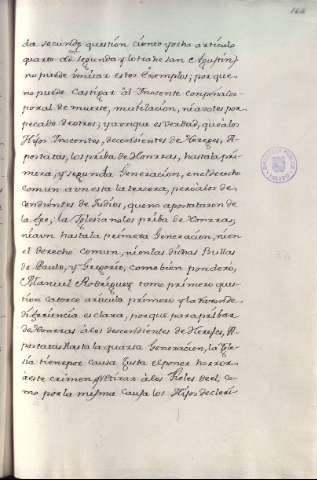 166
da secunde question ciento y ocho articulo
quarto ad segunda y letra de san Agustin)
no puede imitar estos Exemplos; porque
no puede Castigar al Inocente con pena tem-
poral de muerte, mutilacion, ni azotes por
pecado de otros; y aunque es verdad, que a los
Hijos Inocentes, decendientes de Hereges, A-
postatas, los priba de Honrras, hasta la pri-
mera, y segunda Generacion, en el derecho
comun aun esta la tercera, pero a los de-
cendientes de Judios, que no apostataron de
la Fee; la Iglesia no los priba de Honrras,
ni aun hasta la primera Generacion, ni en
el Derecho Comun, ni en las dichas Bullas
de Paulo, y Gregorio, como bien ponderó,
Manuel Rodriguez tomo primero ques-
tion catorce articulo primero y la razon de
diferiencia es clara, porque para pribar
de Honrras à los descendientes de Herejes, A-
postatas hasta la quarta Generacion, la Igle-
sia tiene por causa Justa el poner horror
à este crimen y retirar à los Fieles de el, co-
mo por la misma causa los Hijos de cleri-